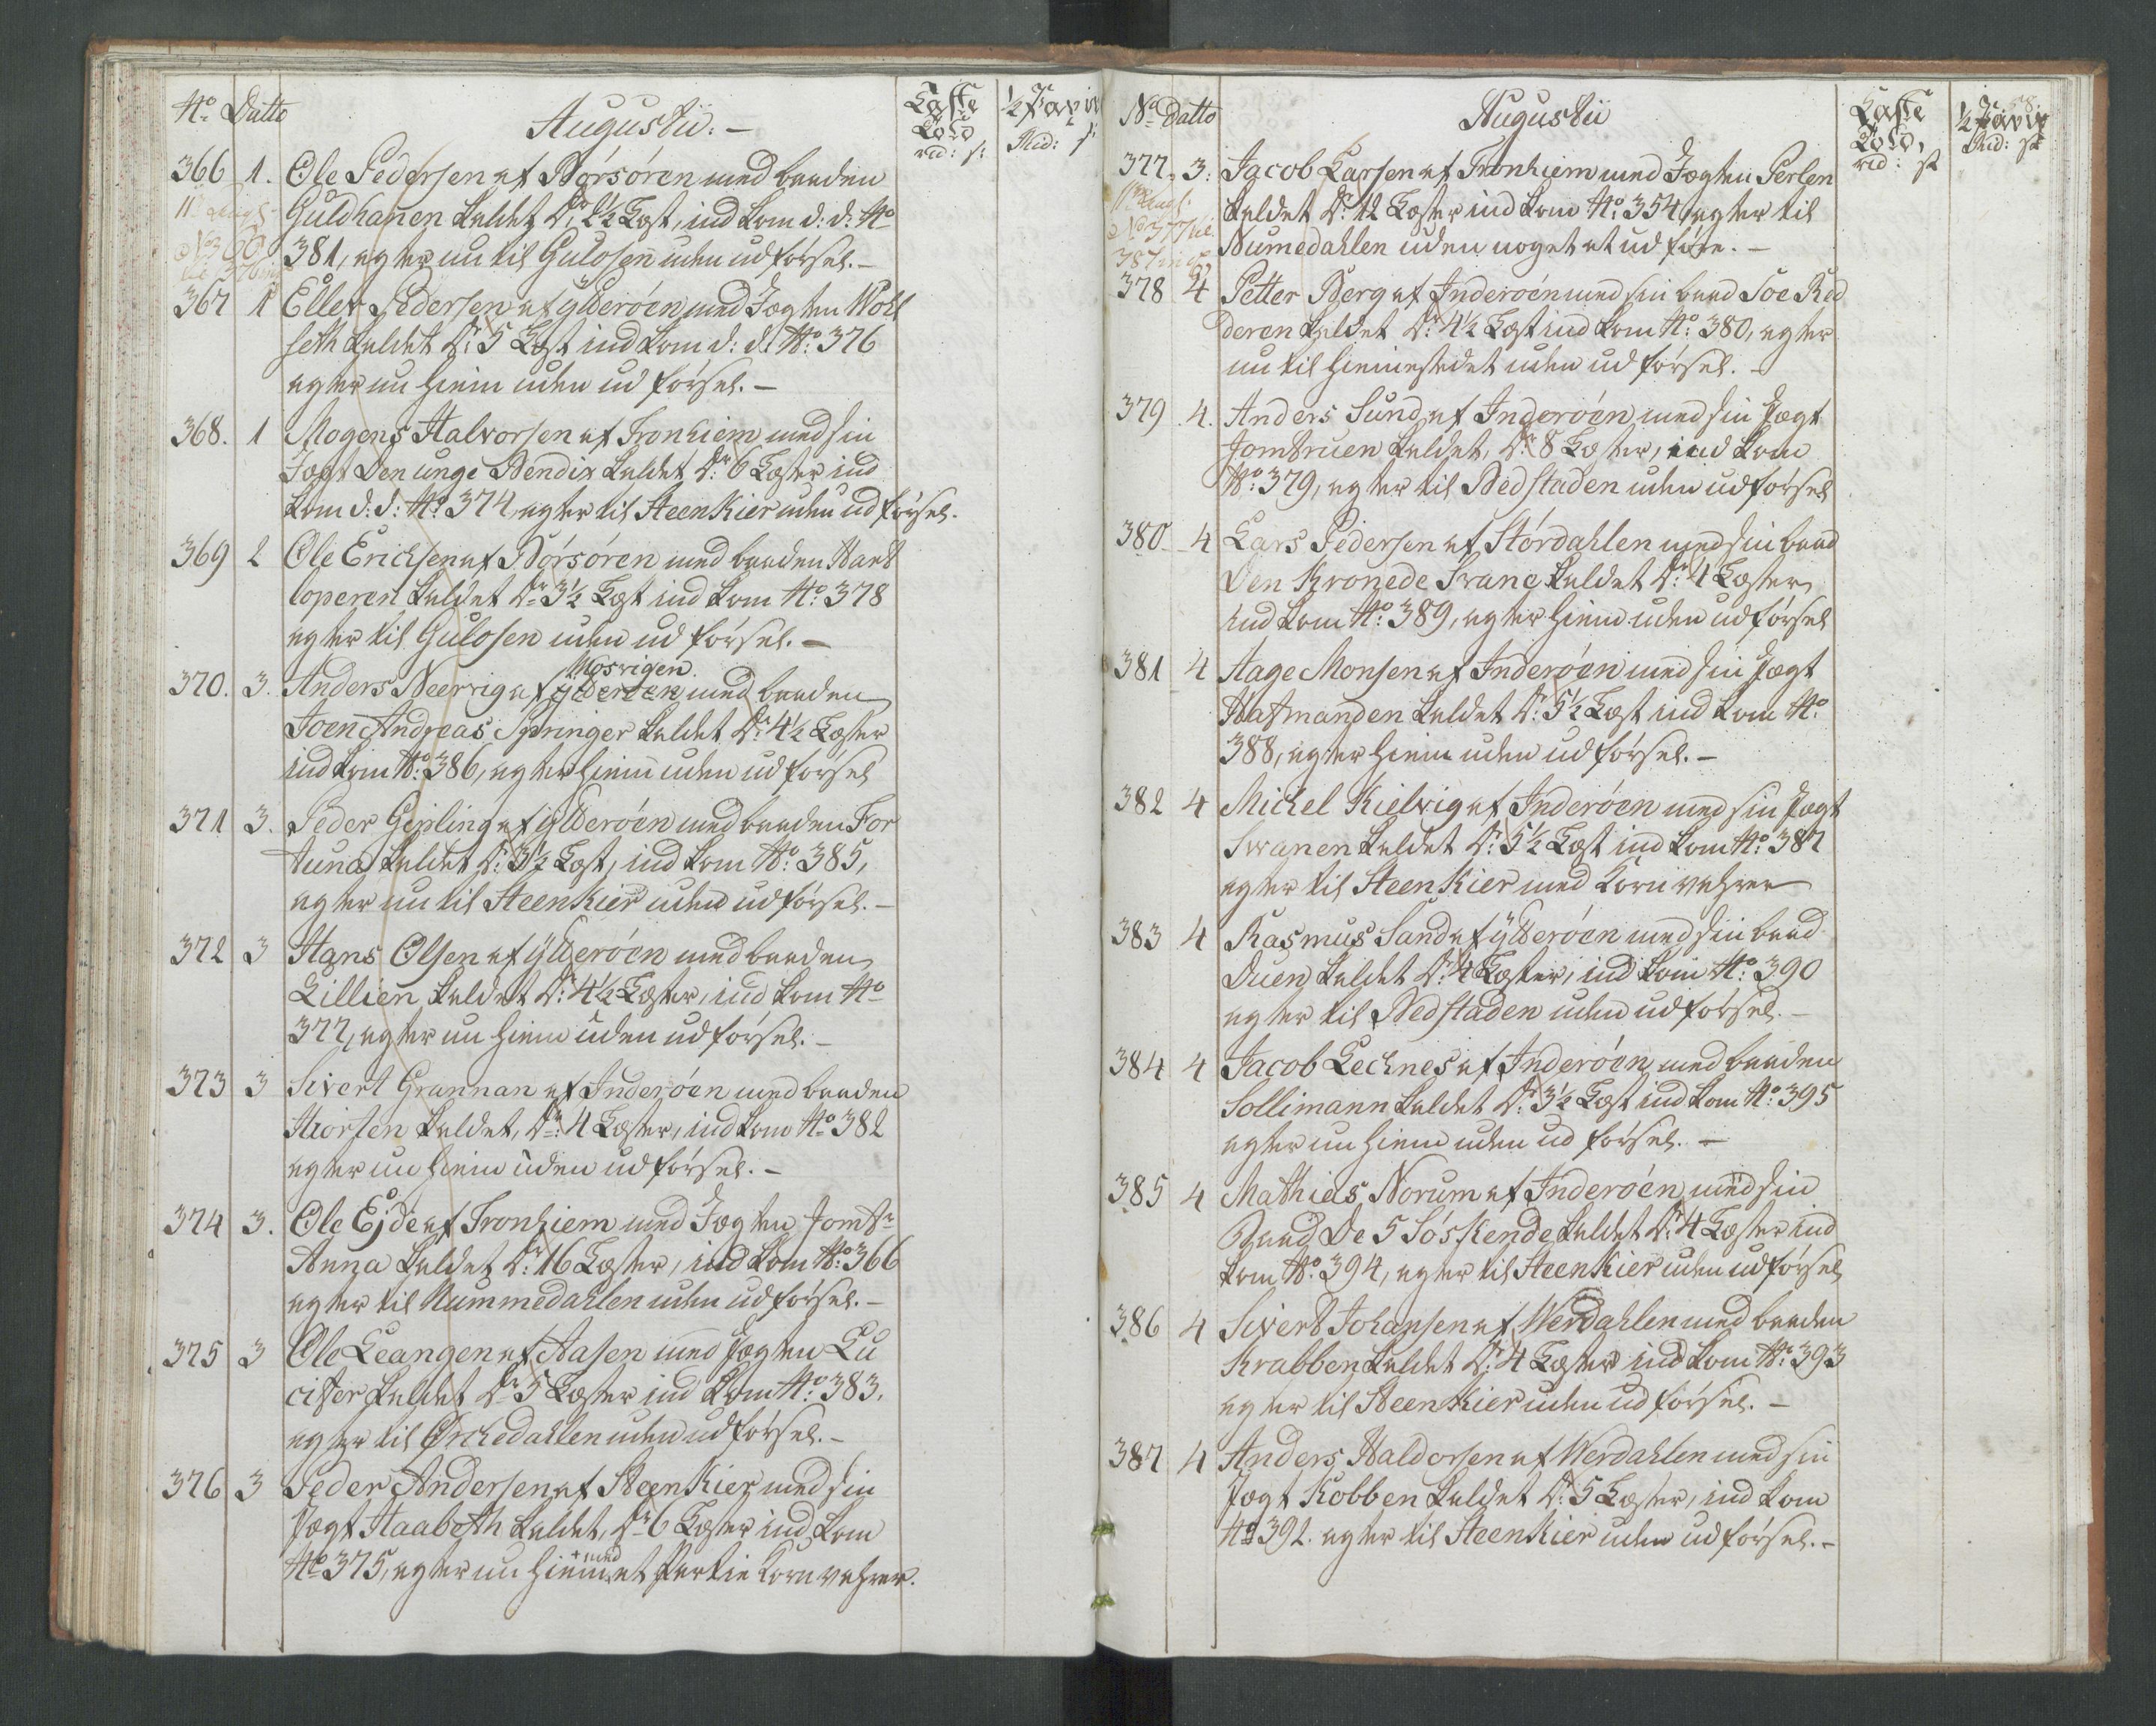 No Datto
Augustii. –
Læste Told rd: s:
½ Pavir Rid: s:
366 1. Ole Pedersen af Börsören med baaden
Guldhanen kaldet Dr: 2½ Læst, ind kom d: d: No
381, agter nu til Gulosen uden udförsel. –
11t Augs:
No 366
til 376 incl
367 1 Eller Pedersen af ÿtteröen med Jægten Wohl
seth kaldet Dr: 5 Læst ind kom d: d: No: 376
agter nu hiem uden udförsel. –
368. 1 Mogens Halvorsen af Tronhiem med sin
Jægt Den unge Bendix kaldet Dr: 6 Læster ind
kom d: d: No: 374, agter til Steenkier uden udförsel.
369 2 Ole Erichsen af Börsören med baaden Hart
loperen kaldet Dr: 3½ Læst ind kom No: 378
agter til Gulosen uden udförsel. –
Mosvigen
370. 3. Anders Neervig af ÿtteröen med baaden
Joen Andreas Springer kaldet Dr: 4½ Læster
ind kom No: 386, agter hiem uden udförsel
371 3. Peder Gipling af ÿtteröen med baaden For
tuna kaldet Dr: 3½ Læst, ind kom No: 385,
agter nu til Steenkier uden udförsel. –
372 3 Hans Olsen af ÿtteröen med baaden
Lillien kaldet Dr: 4½ Læster, ind kom No
377, agter nu hiem uden udförsel. –
373 3 Sivert Grannan af Inderöen med baaden
Hiorten kaldet, Dr: 4 Læster, ind kom No 382
agter nu hiem uden udförsel. –
374 3. Ole Ejde af Tronhiem med Jægten Jomfr
Anna kaldet Dr: 16 Læster, ind kom No: 366
agter til Nummedahlen uden udförsel. –
375 3 Ole Leangen af Aasen med Jægten Lu
cifer kaldet Dr 5 Læster ind kom No: 383.
agter til Orchedahlen uden udförsel. –
376 3 Peder Andersen af Steenkier med sin
Jægt Haabeth kaldet, Dr 6 Læster ind kom
No 375, agter nu hiem + med et Partie Kornvahrer.
No Datto
Augustii
Læste Told, rd: s
½ Pavir Rid: s
58.
377. 3. Jacob Larsen af Tronhiem med Jægten Perlen
kaldet Dr: 12 Læster ind kom No: 354, agter til
Numedahlen uden noget at udföre. –
11te Augs:
No 377 til
387 incl
378 4 Petter Berg af Inderöen med sin baad Söe Red
deren kaldet Dr: 4½ Læst ind kom No: 380, agter
nu til hiemstedet uden udförsel. –
379 4. Anders Sund af Inderöen med sin Jægt
Jomfruen kaldet, Dr: 8 Læster, ind kom
No: 379, agter til Bedstaden uden udförsel
380 4 Lars Pedersen af Stördahlen med sin baad
Den Kronede Svane kaldet Dr: 4 Læster,
ind kom No: 389, agter hiem uden udförsel
381 4 Aage Monsen af Inderöen med sin Jægt
Hafmanden kaldet Dr: 5½ Læst ind kom No:
388, agter hiem uden udförsel. –
382 4 Michel Kielvig af Inderöen med sin Jægt
Svanen kaldet Dr: 5½ Læst ind kom No: 387
agter til Steenkier med Kornvahrer
383 4 Rasmus Sand af ÿtteröen med sin baad
Duen kaldet Dr: 4 Læster, ind kom No: 390
agter til Bedstaden uden udförsel. –
384 4 Jacob Lechnes af Inderöen med baaden
Sollimann kaldet Dr: 3½ Læst ind kom No: 395
agter nu hiem uden udförsel. –
385 4 Mathias Norum af Inderöen med sin
Baad De 5 Söskende kaldet Dr 4 Læster ind
kom No: 394, agter til Steenkier uden udförsel
386 4 Sivert Johansen af Werdahlen med baaden
Krabben kaldet Dr 4 Læster ind kom No: 393
agter til Steenkier uden udförsel. –
387 4 Anders Haldorsen af Werdahlen med sin
Jægt Kobben kaldet Dr: 5 Læster, ind kom
No 392. agter til Steenkier uden udförsel. –